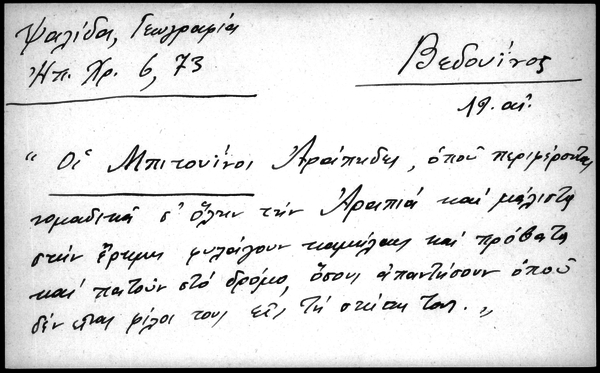 Ψαλίδα, Γεωγραφία
Ἠπ. Χρ. 6, 73
Βεδουίνος
19. αἰ.
“ Οἱ Μπιτουίνοι Ἀράπηδες, ὁποῦ περιφέρονται
νομαδικά σ' ὅλην τήν Ἀραπιά καί μάλιστα
στήν ἔρημη φυλάγουν καμήλας καί πρόβατα
καί πατοῦν στό δρόμο, ὅσους ἀπαντήσουν ὁποῦ
δέν εἶναι φίλοι τους εἰς τή στάση τους. „